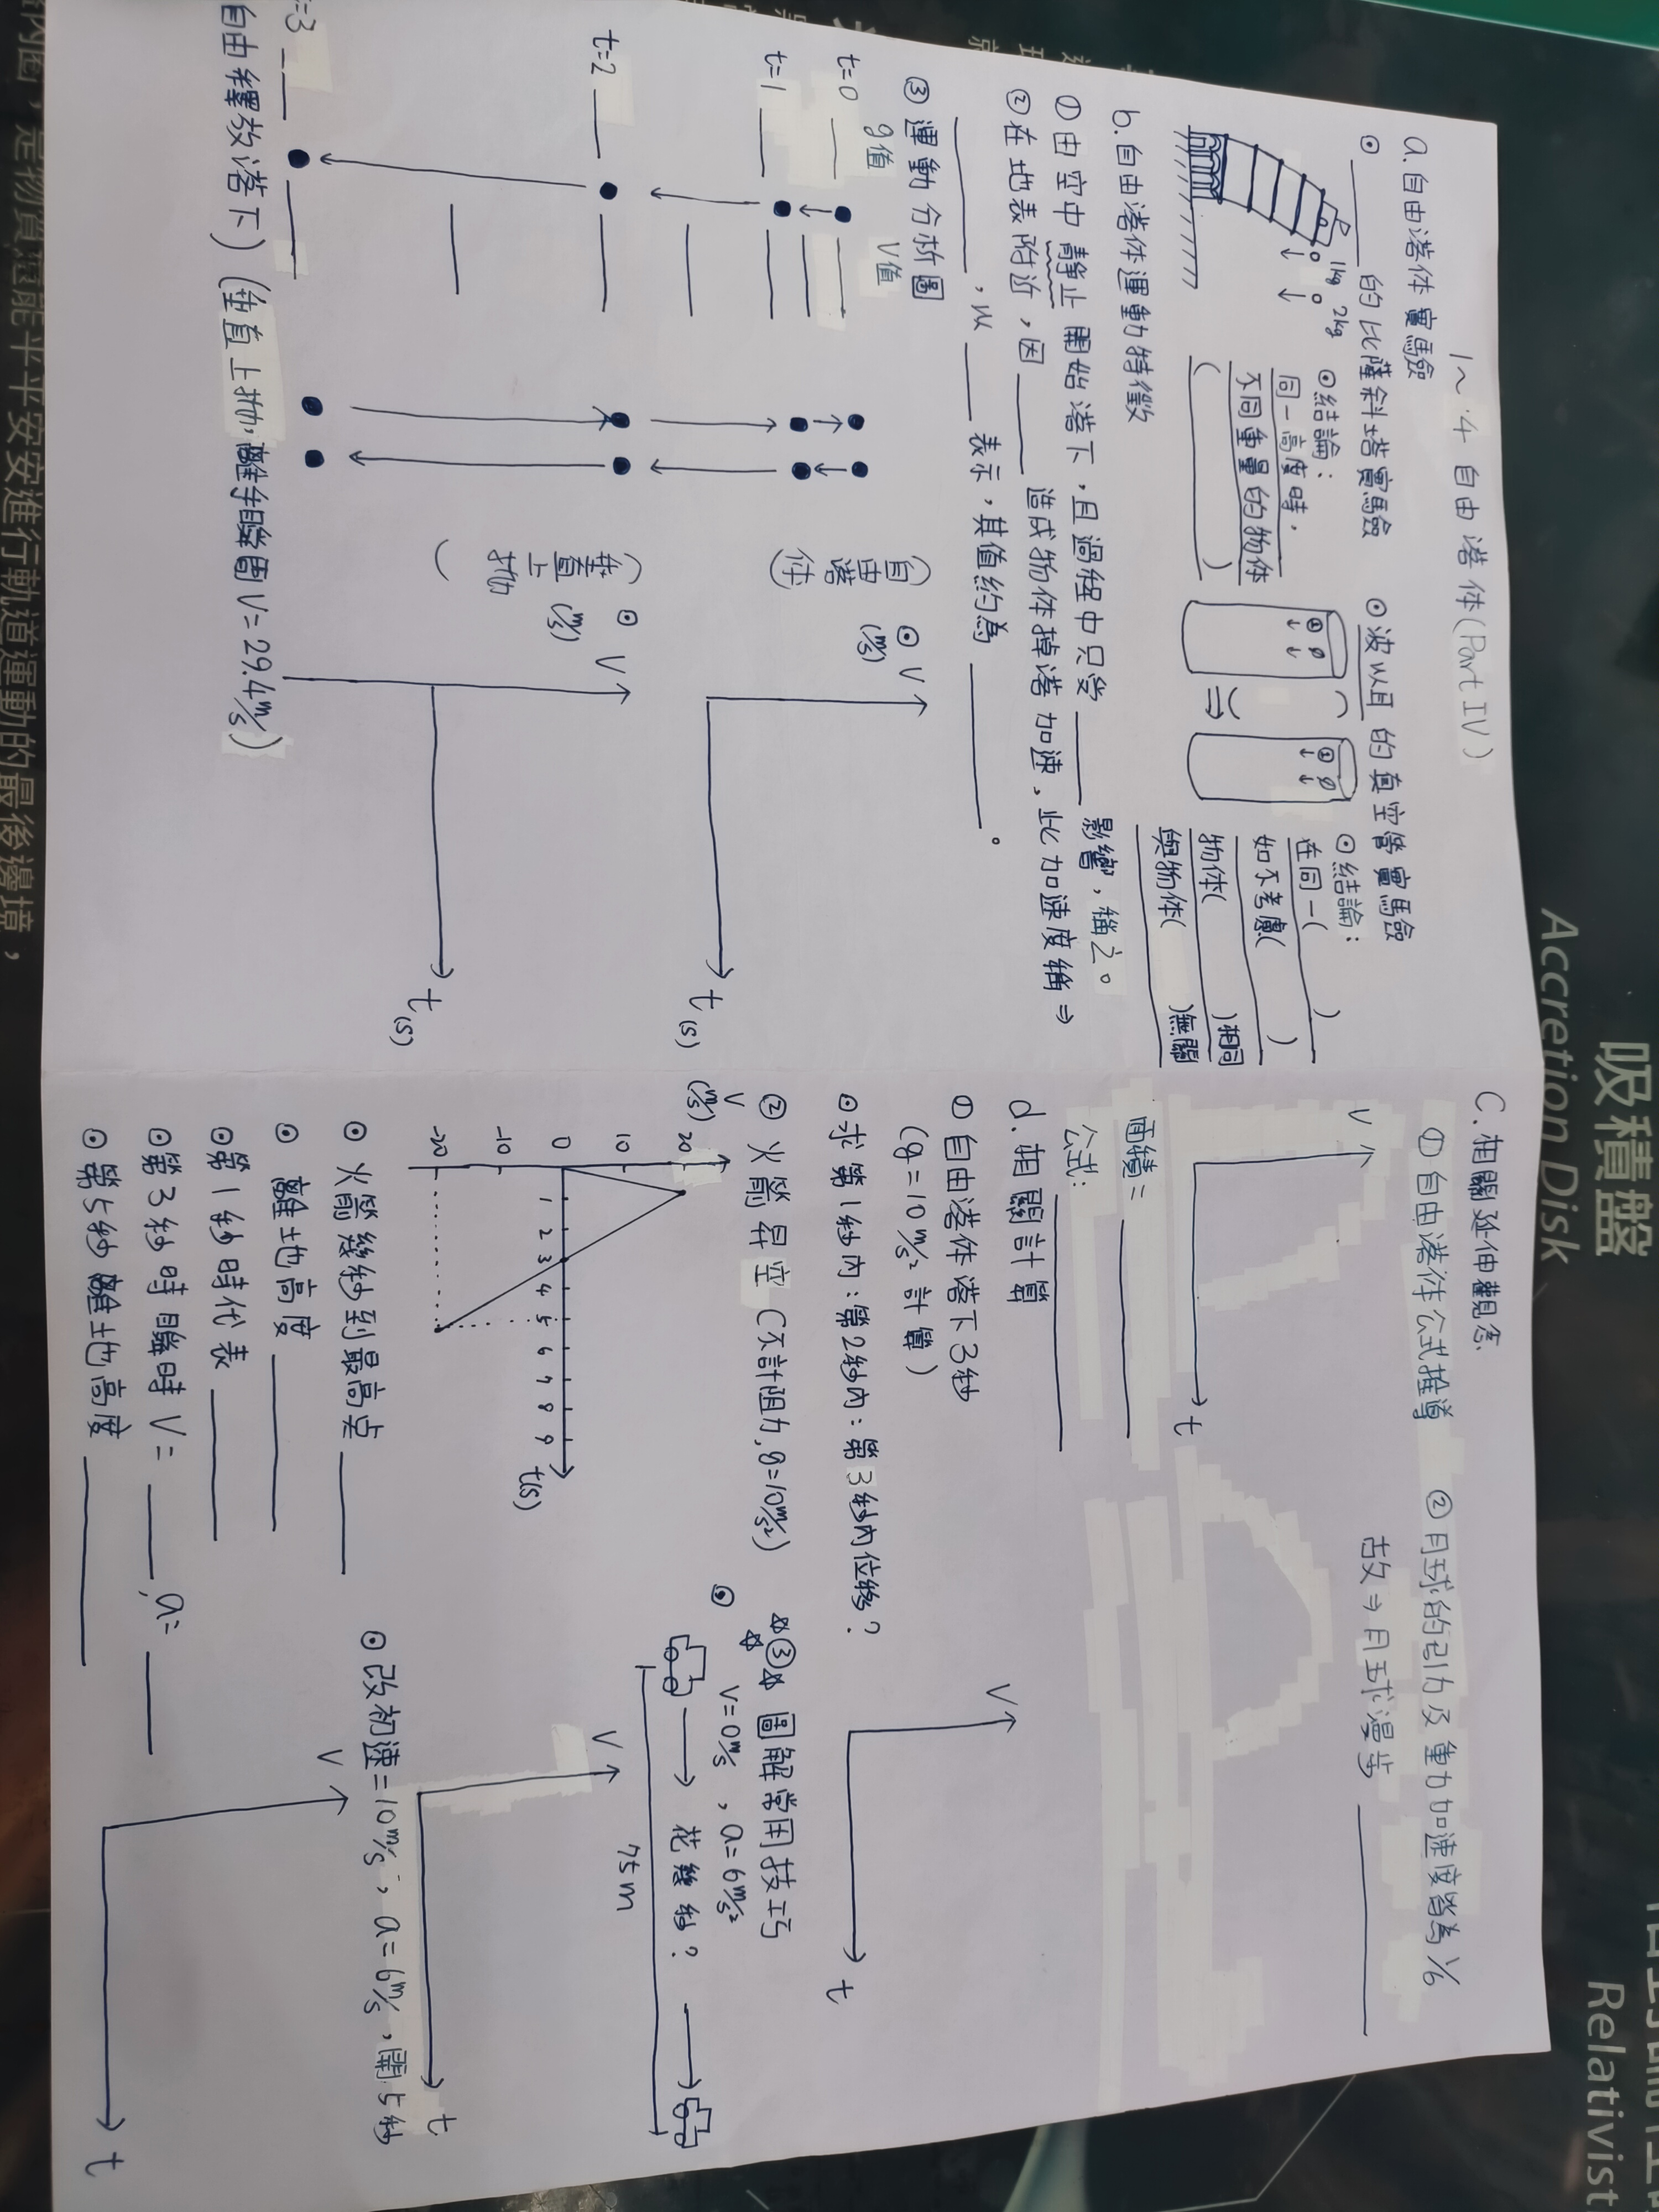 1~4 自由落体(Part IV)
a.自由落体實驗
⊙______的比薩斜塔實驗
1kg 2kg
⊙結論:
同一高度時,
不同重量的物体
( )
⊙波以耳的真空管實驗
( )
⇒
⊙結論:
在同一( )
如不考慮( )
物体( )相同
與物体( )無關
b.自由落体運動特徵
①由空中靜止開始落下,且過程中只受______影響,稱之。
②在地表附近,因______造成物体掉落加速,此加速度稱⇒
______,以____表示,其值約為______。
③運動分析圖
g值 V值
t=0
t=1
t=2
t=3
(自由落体)
⊙ V
(m/s)
t(s)
(垂直上拋)
⊙ V
(m/s)
t(s)
自由釋放落下) (垂直上拋,離手瞬間V=29.4m/s)
C.相關延伸觀念
①自由落体公式推導
V
t
面積=
公式:
②月球的引力及重力加速度皆為1/6
故⇒月球漫步
d.相關計算
①自由落体落下3秒
(g=10m/s² 計算)
⊙求第1秒內:第2秒內:第3秒內位移?
V
t
②火箭昇空(不計阻力,g=10m/s²)
V
(m/s)
20
10
0
-10
-20
1 2 3 4 5 6 7 8 9
t(s)
⊙火箭幾秒到最高点
⊙離地高度
⊙第1秒時代表
⊙第3秒時瞬時V=______,a=______
⊙第5秒離地高度
☆③☆圖解常用技巧
☆
⊙ V=0m/s,a=6m/s²
花幾秒?
75m
V
t
⊙改初速=10m/s,a=6m/s,開5秒
V
t
吸積盤
Accretion Disk
Relativist
是物質還能平平安安進行軌道運動的最後邊境,